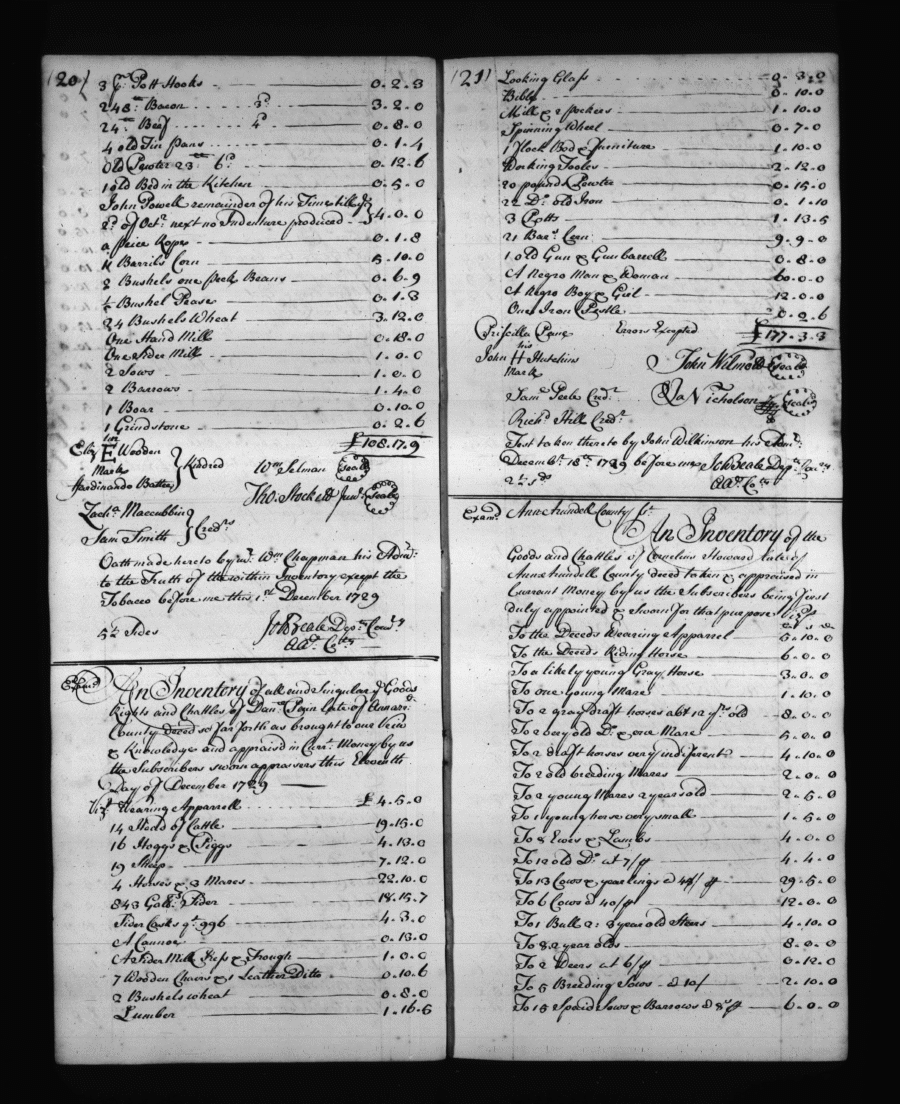 (20)
3 pr Pott Hooks 0.2.3
248 lb Bacon 3d 3.2.0
24 lb Beef 4d 0.8.0
4 old Tin pans 0.1.4
Old Pewter 23 lb 6d 0.12.6
1 old Bed in the Kitchen 0.5.0
John Powell remainder of his Time till ye
2d of Octr next no Indenture produced 4.0.0
a peice Rope 0.1.8
11 Barrils Corn 5.10.0
2 Bushels one peck Beans 0.6.9
½ Bushel Pease 0.1.3
24 Bushels Wheat 3.12.0
One Hand Mill 0.18.0
One Sider Mill 1.0.0
2 Sows 1.0.0
2 Barrows 1.4.0
1 Boar 0.10.0
1 Grindstone 0.2.6
£108.17.9
Eliz her E Wooden
Mark
Hardinando Battee
Kindred
Wm Selman Seale
Tho. Stockett Junr Seale
Zacha Maccubbing
Sam Smith
Credrs
Oath made hereto by Mr Wm Chapman his Admr
to the Truth of the within Inventory except the
Tobacco before me this 1st December 1729
5¼ Sides
Jo Beale Depty Comry
AA Coty
Examd An Inventory of all and Singular ye Goods
Rights and Chattles of Danl Pain late of Annarl
County Decd so far forth as brought to our View
& Knowledge and appraisd in Currt Money by us
the Subscribers sworn apprasers this Eleventh
Day of December 1729
Vizt Wearing Apparrell £4.5.0
14 Head of Cattle 19.15.0
16 Hoggs & Piggs 4.13.0
19 Sheep 7.12.0
4 Horses & 3 Mares 22.10.0
843 Galls Sider 18.15.7
Sider Casks qt 996 4.3.0
A Cannoe 0.13.0
A Sider Mill Press & Trough 1.0.0
7 Wooden Chairs & 1 Leather Ditto 0.10.6
2 Bushels wheat 0.8.0
Lumber 1.16.6
(21)
Looking Glass 0.3.0
Bible 0.10.0
Mill & 2 peckers 1.10.0
Spinning Wheel 0.7.0
1 Flock Bed & furniture 1.10.0
Working Tooles 2.12.0
20 pound Pewter 0.15.0
22 Do old Iron 0.1.10
3 Potts 1.13.5
21 Barl Corn 9.9.0
1 old Gun & Gunbarrell 0.8.0
A Negro Man & Woman 60.0.0
A Negro Boy & Girl 12.0.0
One Iron Pestle 0.2.6
£177.3.3
Priscilla Pane Errors Excepted
John his H Hutchins
Mark
John Wilmott Seale
Saml Peele Credr
Jos Nicholson Seale
Richd Hill Credr
Test taken thereto by John Wilkinson his Admr
Decembr 16th 1729 before me Jo Beale Depty Comry
2¼ Sds AA Coty
Examd Anne Arundell County Sct
An Inventory of the
Goods and Chattles of Cornelius Howard late of
Anne Arundell County decd taken & appraised in
Currant Money by us the Subscribers being first
duly appointed & Sworn for that purpose Vizt
£ s d
To the Deceds Wearing Apparrel 5.10.0
To the Deceds Riding Horse 6.0.0
To a likely young Gray Horse 3.0.0
To one young Mare 1.10.0
To 2 gray draft horses abt 12 yrs old 8.0.0
To 2 very old Do & one Mare 5.0.0
To 2 draft horses very indifferent 4.10.0
To 2 old breeding Mares 2.0.0
To 2 young Mares 2 years old 2.5.0
To 1 young horse very small 1.5.0
To 8 Ewes & Lambs 4.0.0
To 12 old Do at 7/ p 4.4.0
To 13 Cows & yearlings @ 45/ p 29.5.0
To 6 Cows @ 40/ p 12.0.0
To 1 Bull 2: 3 year old Steers 4.10.0
To 8 2 year olds 8.0.0
To 2 Deers at 6/ p 0.12.0
To 5 Breeding Sows @ 10/ 2.10.0
To 15 Spaid Sows & Barrows @ 8/ p 6.0.0